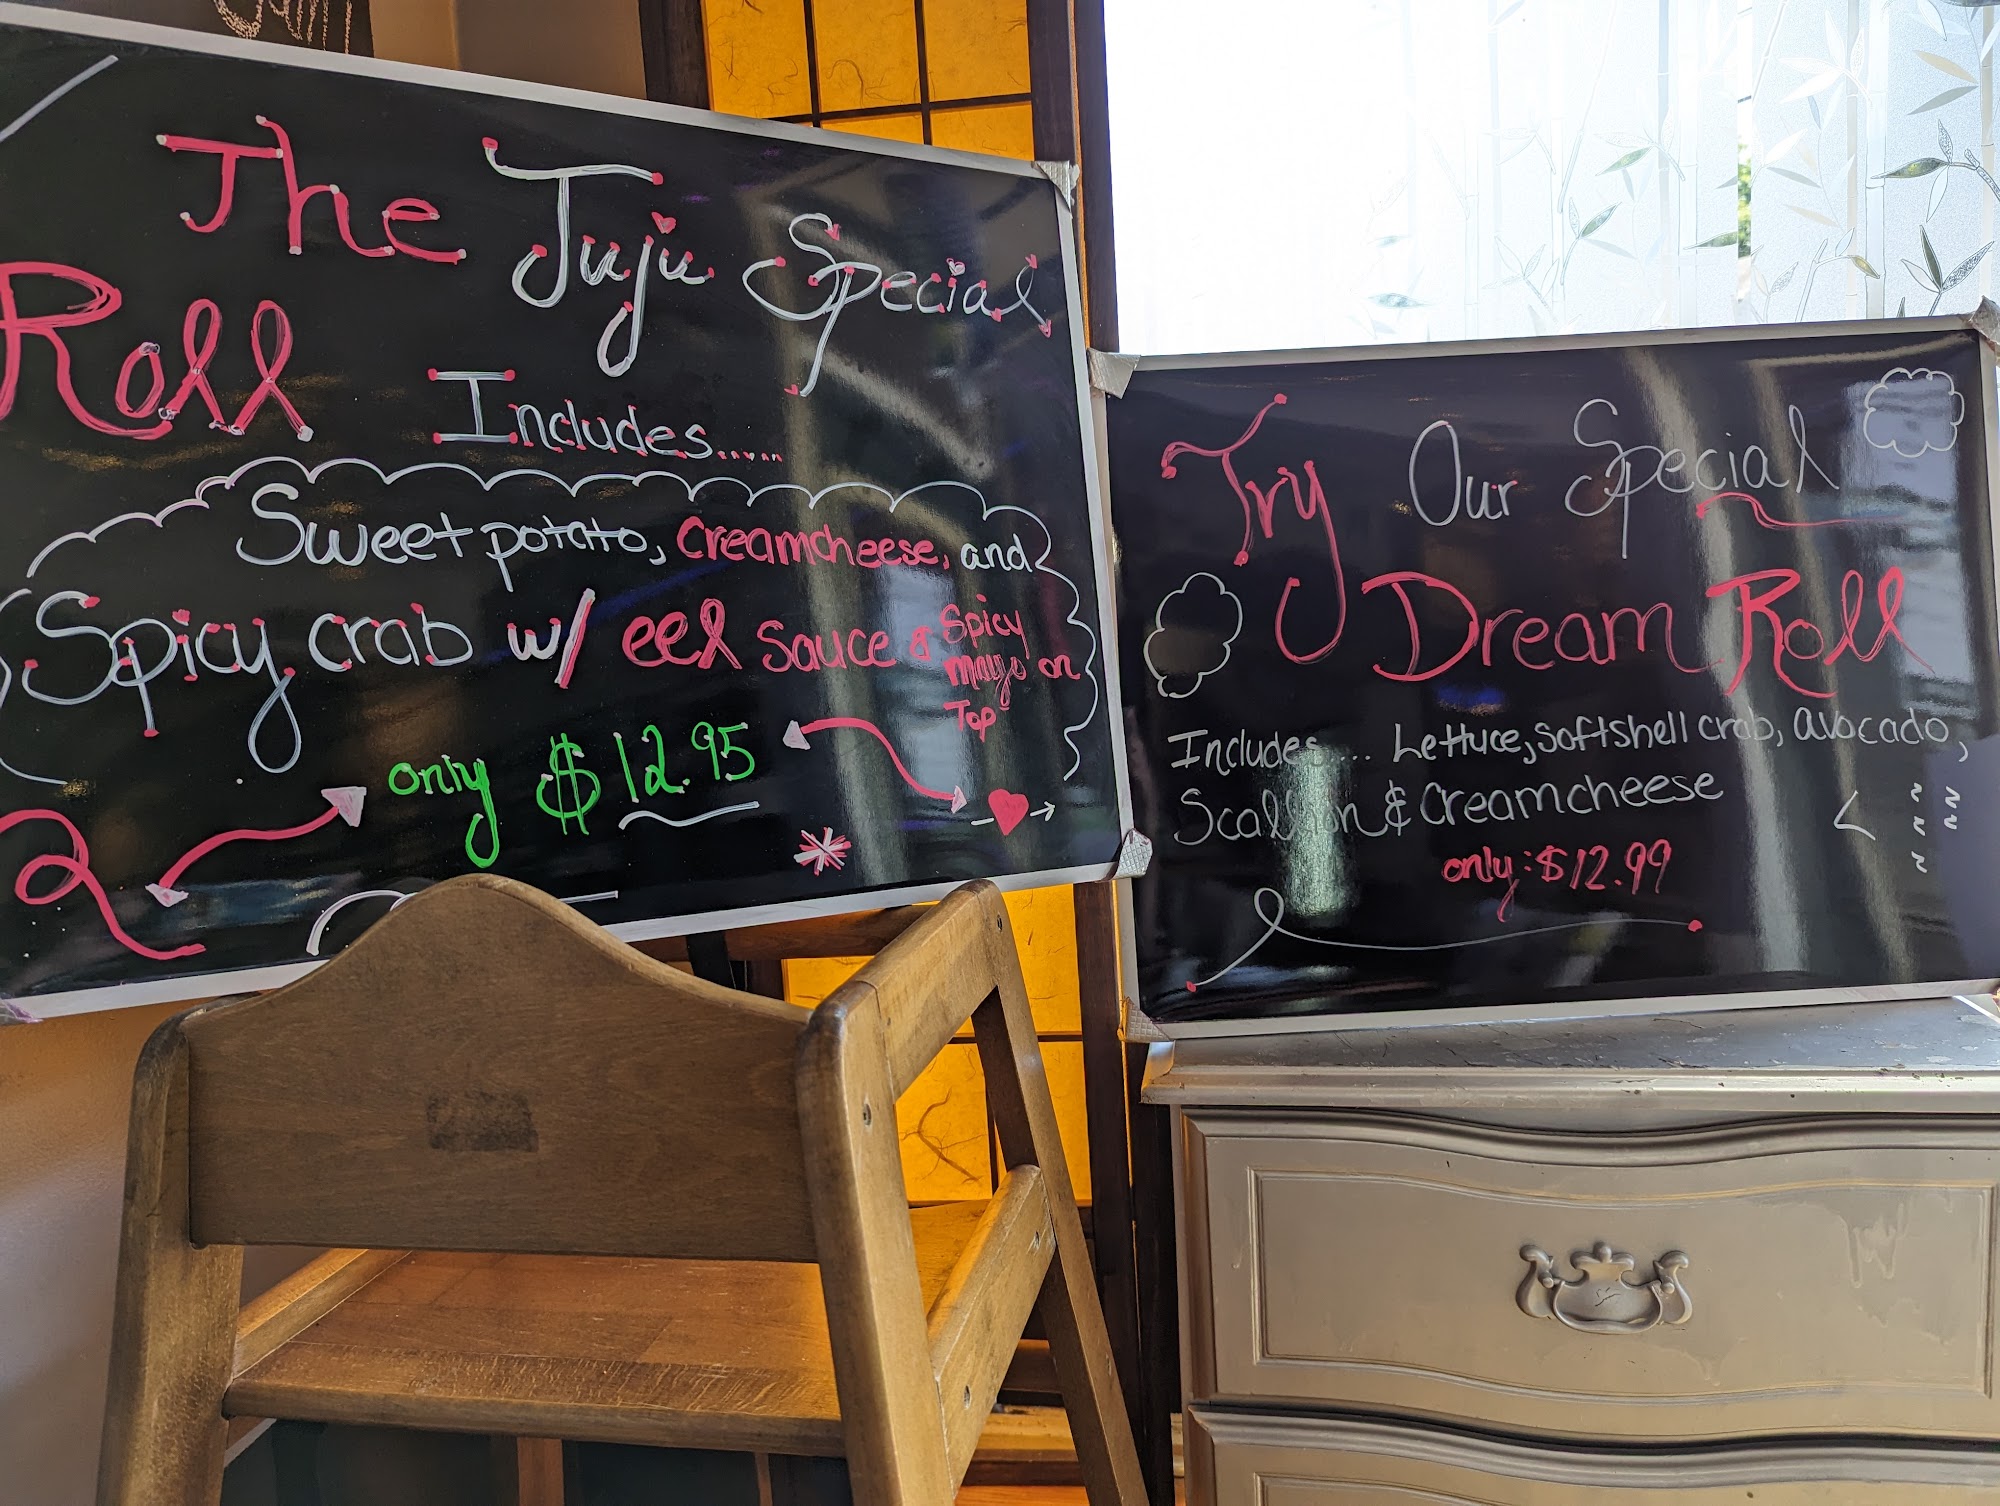 The Juju Special
Roll
Includes......
Sweet potato, Creamcheese, and
Spicy crab w/ eel sauce & Spicy
mayo on
Top
only $12.95
Try Our Special
Dream Roll
Includes.... Lettuce, softshell crab, avocado,
Scallion & Creamcheese
only: $12.99